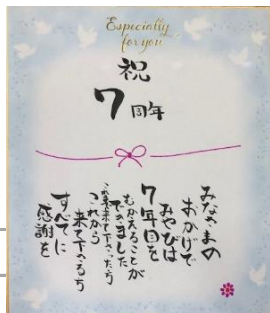 Especially
for you
祝
7周年
みなさまの
おかげで
みやびは
7年目を
むかえることが
できました
これまで来て下さった方
これから
来て下さる方
すべてに
感謝を